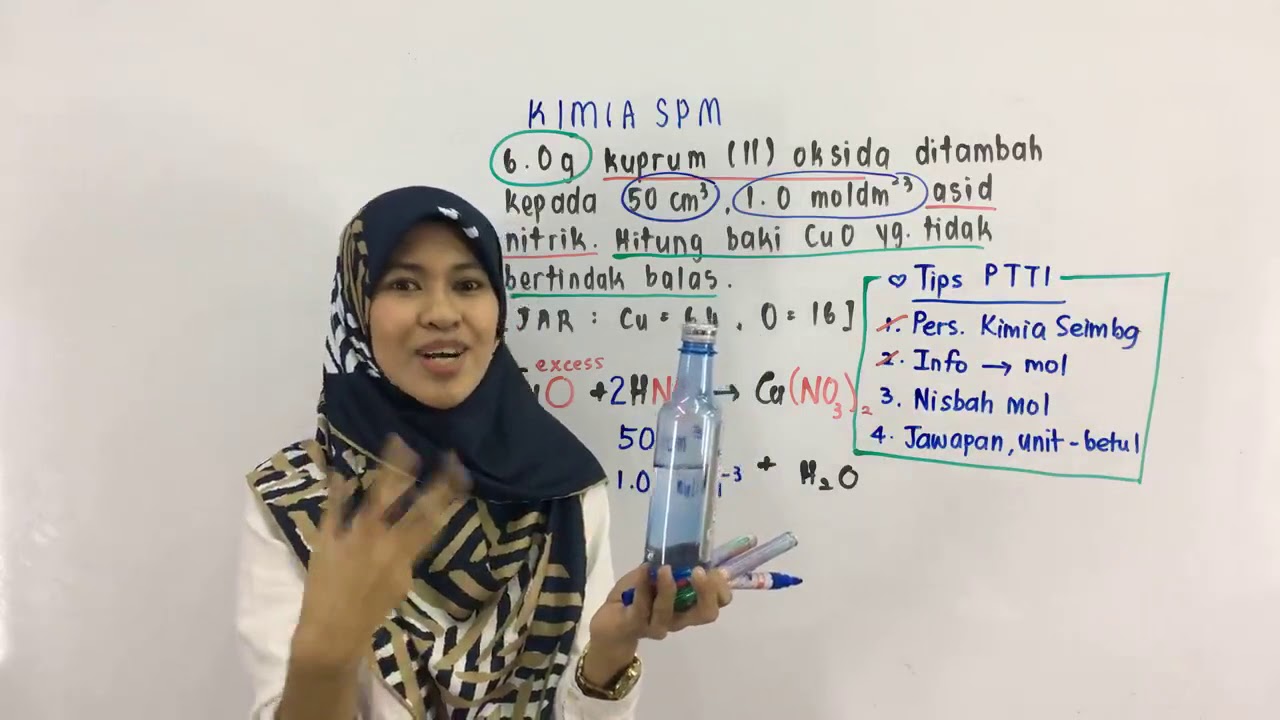 KIMIA SPM
6.0g kuprum (II) oksida ditambah
kepada 50 cm³, 1.0 moldm⁻³ asid
nitrik. Hitung baki CuO yg. tidak
bertindak balas.
[JAR : Cu = 64, O = 16]
♡ Tips PTTI
1. Pers. Kimia Seimbg
2. Info → mol
3. Nisbah mol
4. Jawapan, unit - betul
excess
O + 2HN → Cu(NO₃)₂
50
+ H₂O
1.0 ⁻³